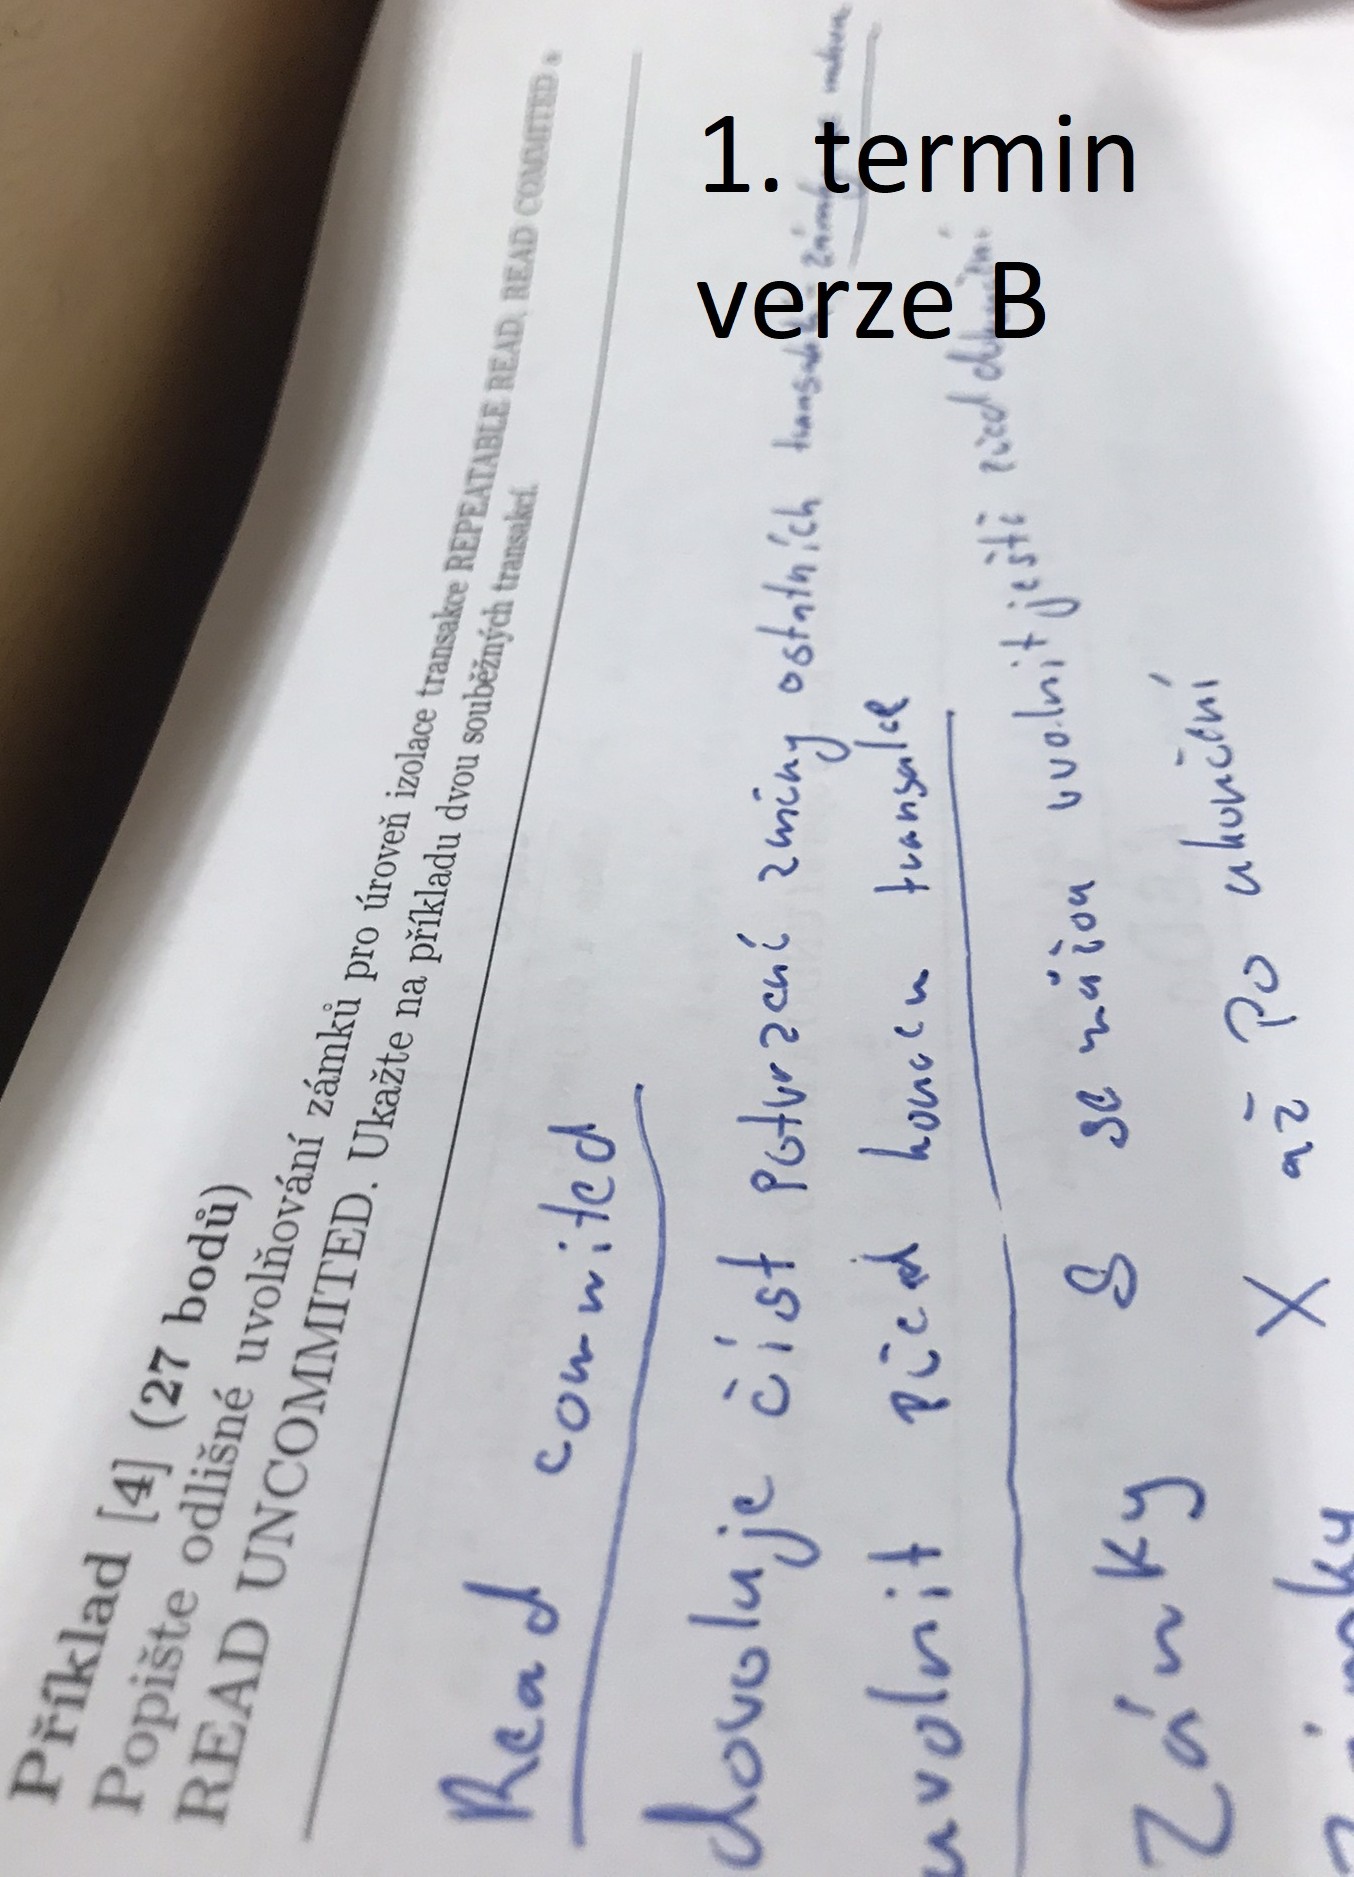 1. termin
verze B
Příklad [4] (27 bodů)
Popište odlišné uvolňování zámků pro úroveň izolace transakce REPEATABLE READ, READ COMMITED a
READ UNCOMMITED. Ukažte na příkladu dvou souběžných transakcí.
Read commited
dovoluje číst potvrzení změny ostatních
uvolnit před koncem transakce
zámky S se můžou uvolnit ještě před
X až po ukončení